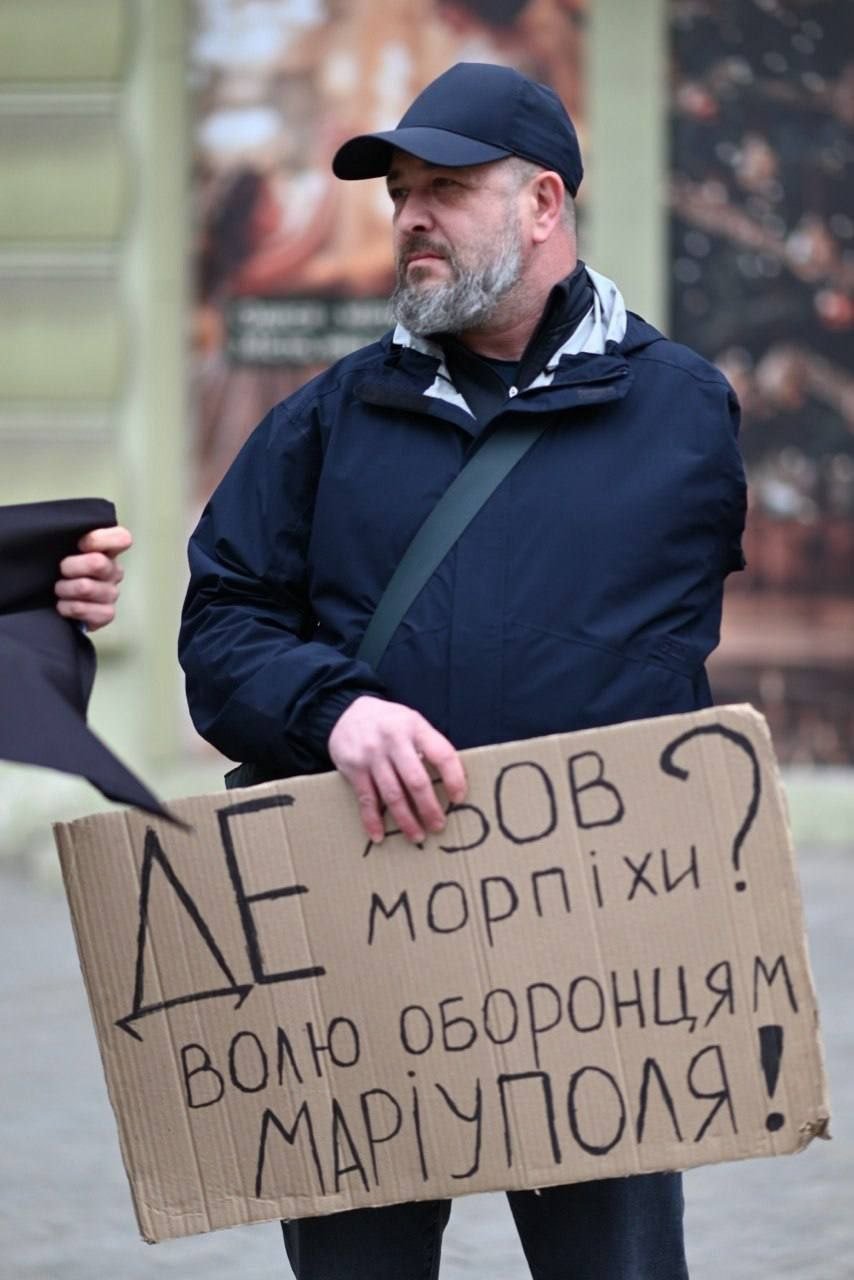 ДЕ АЗОВ
МОРПІХИ?
ВОЛЮ ОБОРОНЦЯМ
МАРІУПОЛЯ!